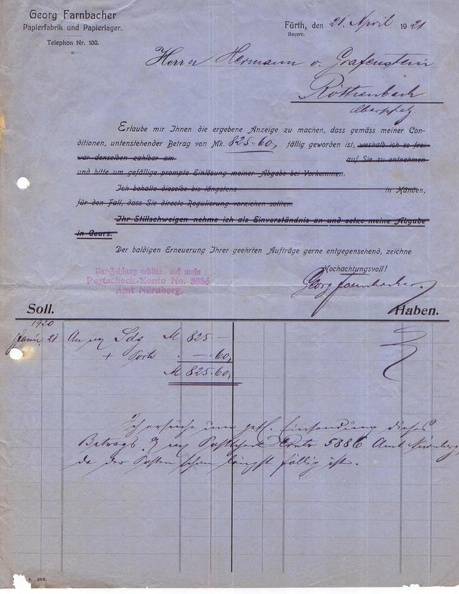 Georg Farnbacher
Papierfabrik und Papierlager.
Telephon Nr. 100.
Fürth, den 21. April 1921
Bayern.
Herrn Hermann v. Grafenstein
Röthenbach
Oberpfalz
Erlaube mir Ihnen die ergebene Anzeige zu machen, dass gemäss meiner Con-
ditionen, untenstehender Betrag von Mk. 825.60, fällig geworden ist, weshalb ich so frei
war denselben zahlbar am auf Sie zu entnehmen
und bitte um gefällige prompte Einlösung meiner Abgabe bei Vorkommen.
Ich behalte dieselbe bis längstens in Händen,
für den Fall, dass Sie directe Regulierung vorziehen sollten.
Ihr Stillschweigen nehme ich als Einverständnis an und setze meine Abgabe
in Cours.
Der baldigen Erneuerung Ihrer geehrten Aufträge gerne entgegensehend, zeichne
Hochachtungsvoll!
Georg Farnbacher.
Zahlung erbitte auf mein
Postscheck-Konto No. 5886
Amt Nürnberg.
Soll. Haben.
1920
21 An Sdg M 825 —
+ Porto . — 60,
M 825.60,
Ich ersuche um gefl. Einsendung dieses
Betrags auf Postscheck Conto 5886 Amt Nürnberg,
da der Posten schon längst fällig ist.